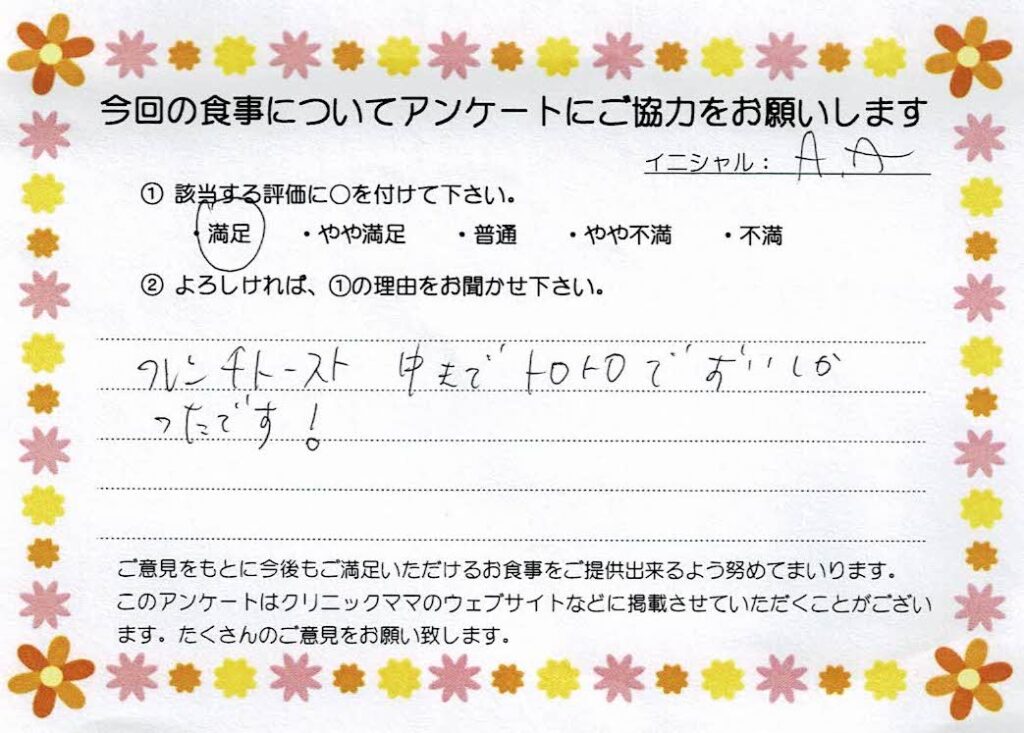 今回の食事についてアンケートにご協力をお願いします
イニシャル： A.A
① 該当する評価に〇を付けて下さい。
・満足 ・やや満足 ・普通 ・やや不満 ・不満
② よろしければ、①の理由をお聞かせ下さい。
フレンチトースト 中までトロトロでおいしか
ったです！
ご意見をもとに今後もご満足いただけるお食事をご提供出来るよう努めてまいります。
このアンケートはクリニックママのウェブサイトなどに掲載させていただくことがござい
ます。たくさんのご意見をお願い致します。